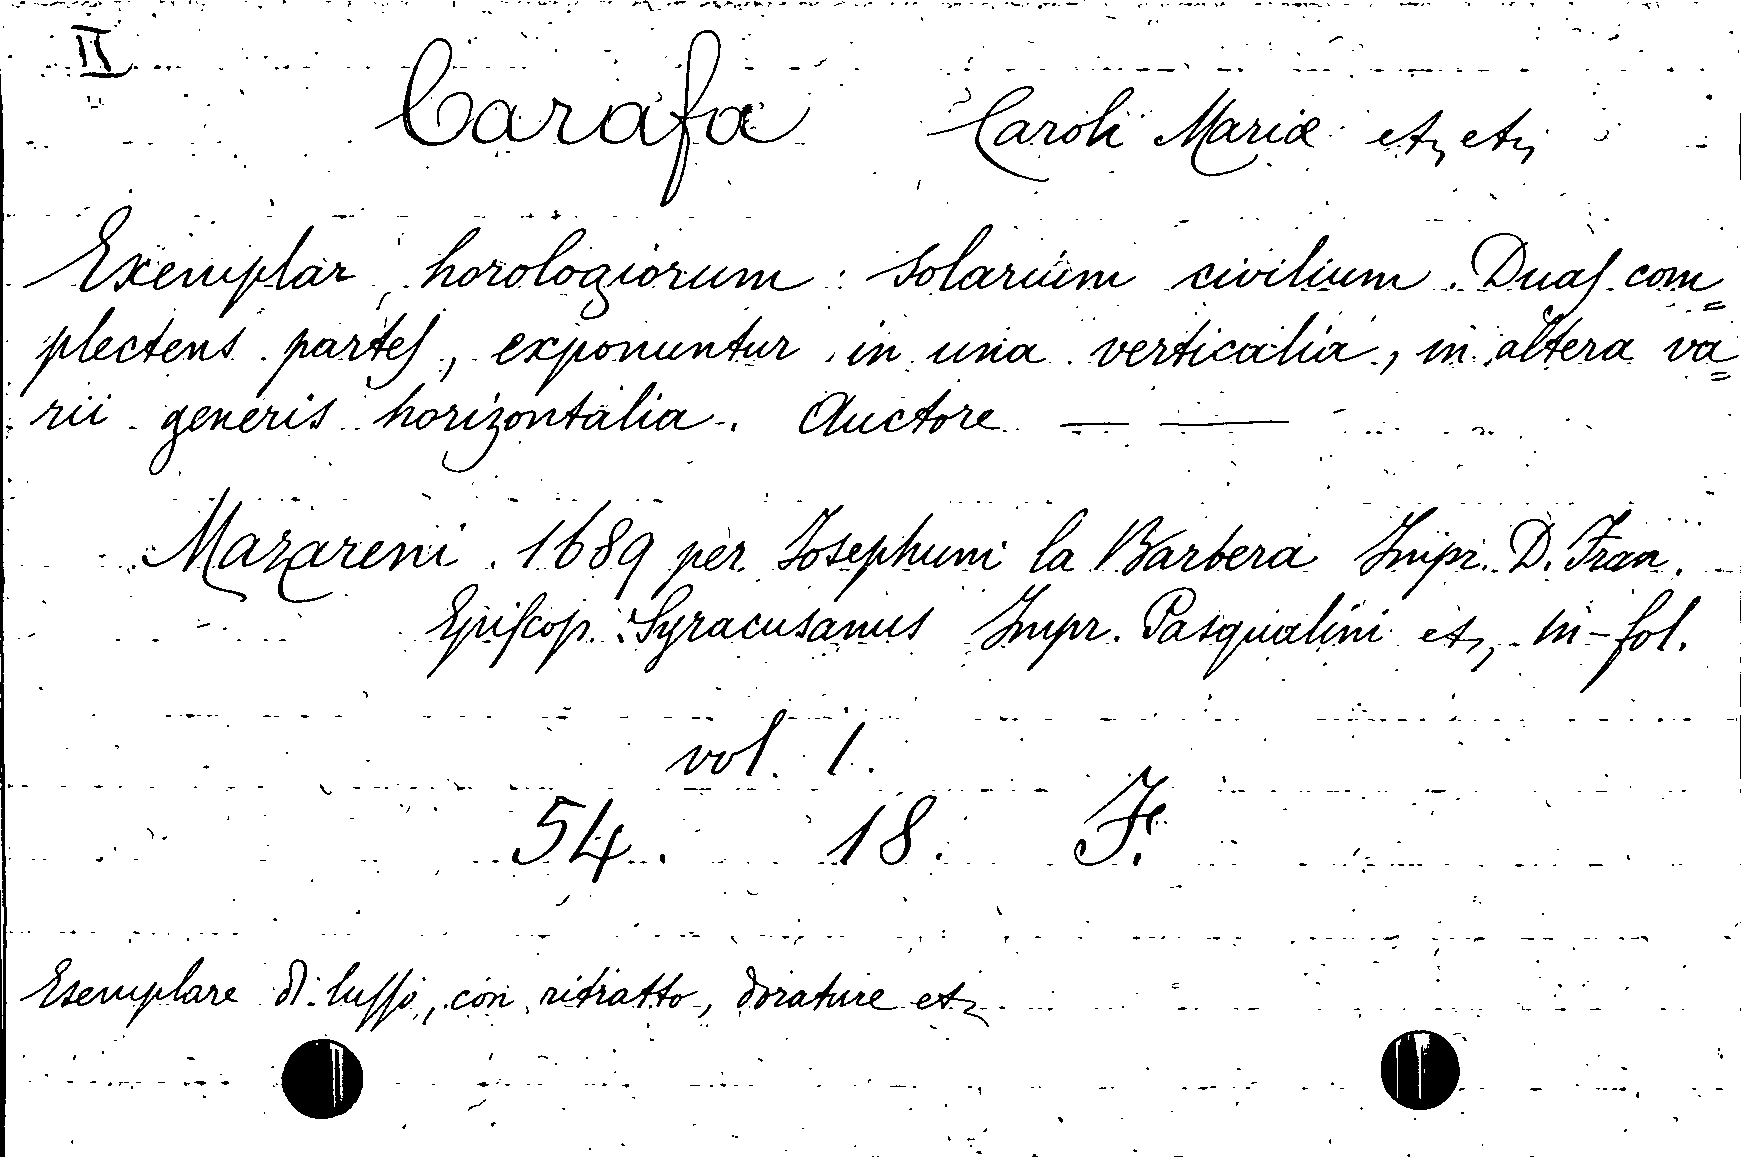 II
Carafa Caroli Mariæ etc, etc,
Exemplar horologiorum solarium civilium. Duas com=
plectens partes, exponuntur in una verticalia, in altera va=
rii generis horizontalia. Auctore — —
Mazareni 1689 per Josephum la Barbera Impr. D. Fran.
Episcop. Syracusanus Impr. Pasqualini etc, in-fol.
vol. 1.
54. 18. F.
Esemplare di lusso, con ritratto, dorature etc